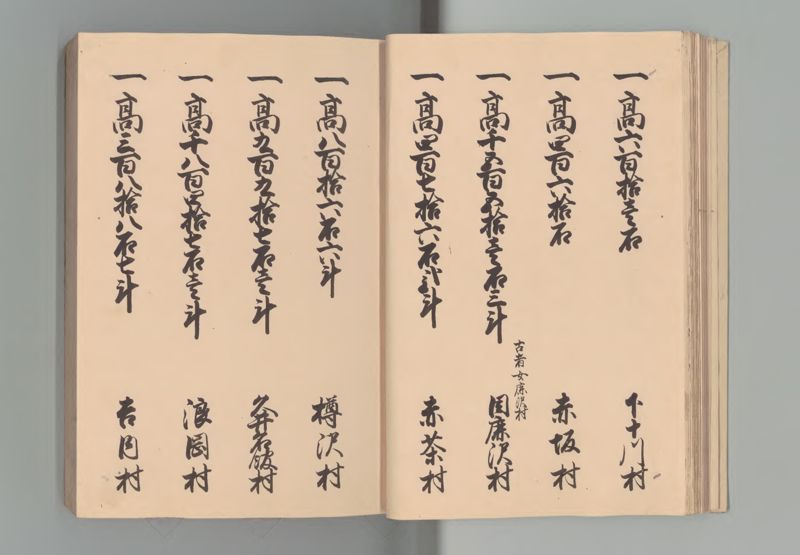 一高六百拾壱石
下十川村
一高四百六拾石
赤坂村
一高千五百五拾壱石三斗
古者女鹿沢村
目鹿沢村
一高四百七拾六石弐斗
赤茶村
一高八百拾六石六斗
樽沢村
一高九百九拾七石壱斗
久井名舘村
一高千八百四拾七石壱斗
浪岡村
一高三百八拾八石七斗
吉内村